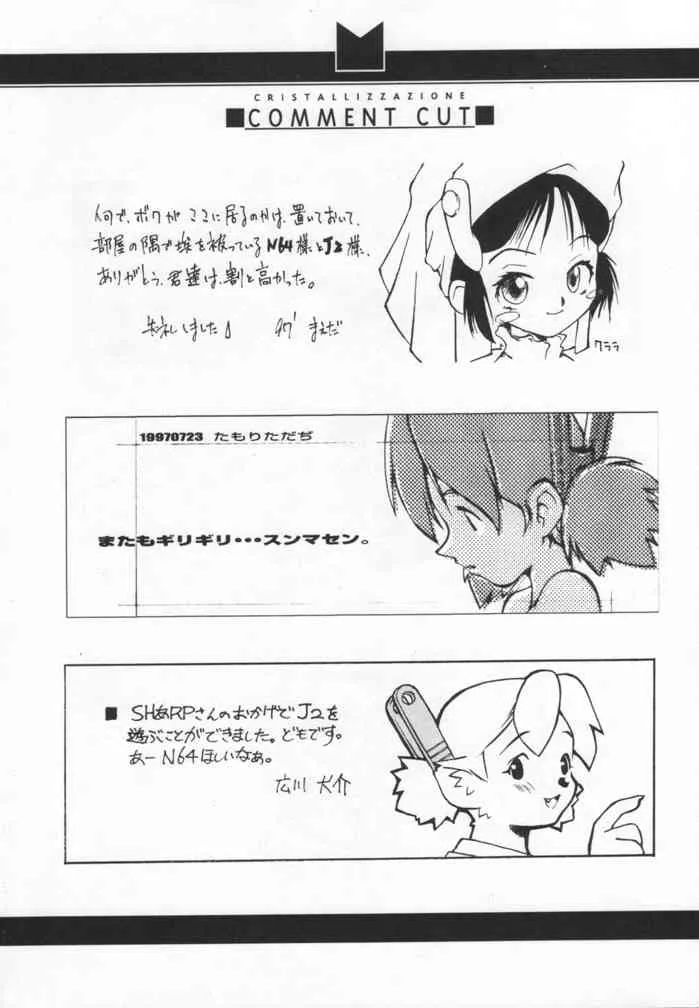 CRISTALLIZZAZIONE
■COMMENT CUT■
何で、ボクが ここに居るのかは、置いておいて、
部屋の隅で埃を被っているN64様とJ2様、
ありがとう、君達は、割と高かった。
失礼しました 97' まえだ
クララ
19970723 たもりただぢ
またもギリギリ・・・スンマセン。
■ SHあRPさんのおかげでJ2を
遊ぶことができました。どもです。
あーN64ほしいなぁ。
広川 大介